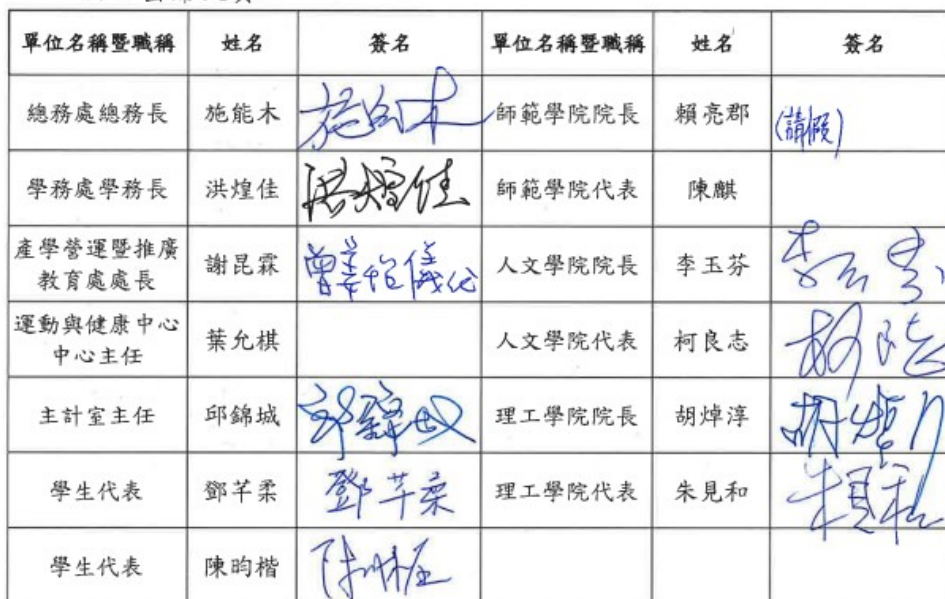 單位名稱暨職稱 姓名 簽名 單位名稱暨職稱 姓名 簽名
總務處總務長 施能木 施能木 師範學院院長 賴亮郡 (請假)
學務處學務長 洪煌佳 洪煌佳 師範學院代表 陳麒
產學營運暨推廣
教育處處長 謝昆霖 曾姜怡儀代 人文學院院長 李玉芬 李玉芬
運動與健康中心
中心主任 葉允棋 人文學院代表 柯良志 柯良志
主計室主任 邱錦城 邱錦城 理工學院院長 胡焯淳 胡焯淳
學生代表 鄧芊柔 鄧芊柔 理工學院代表 朱見和 朱見和
學生代表 陳昀楷